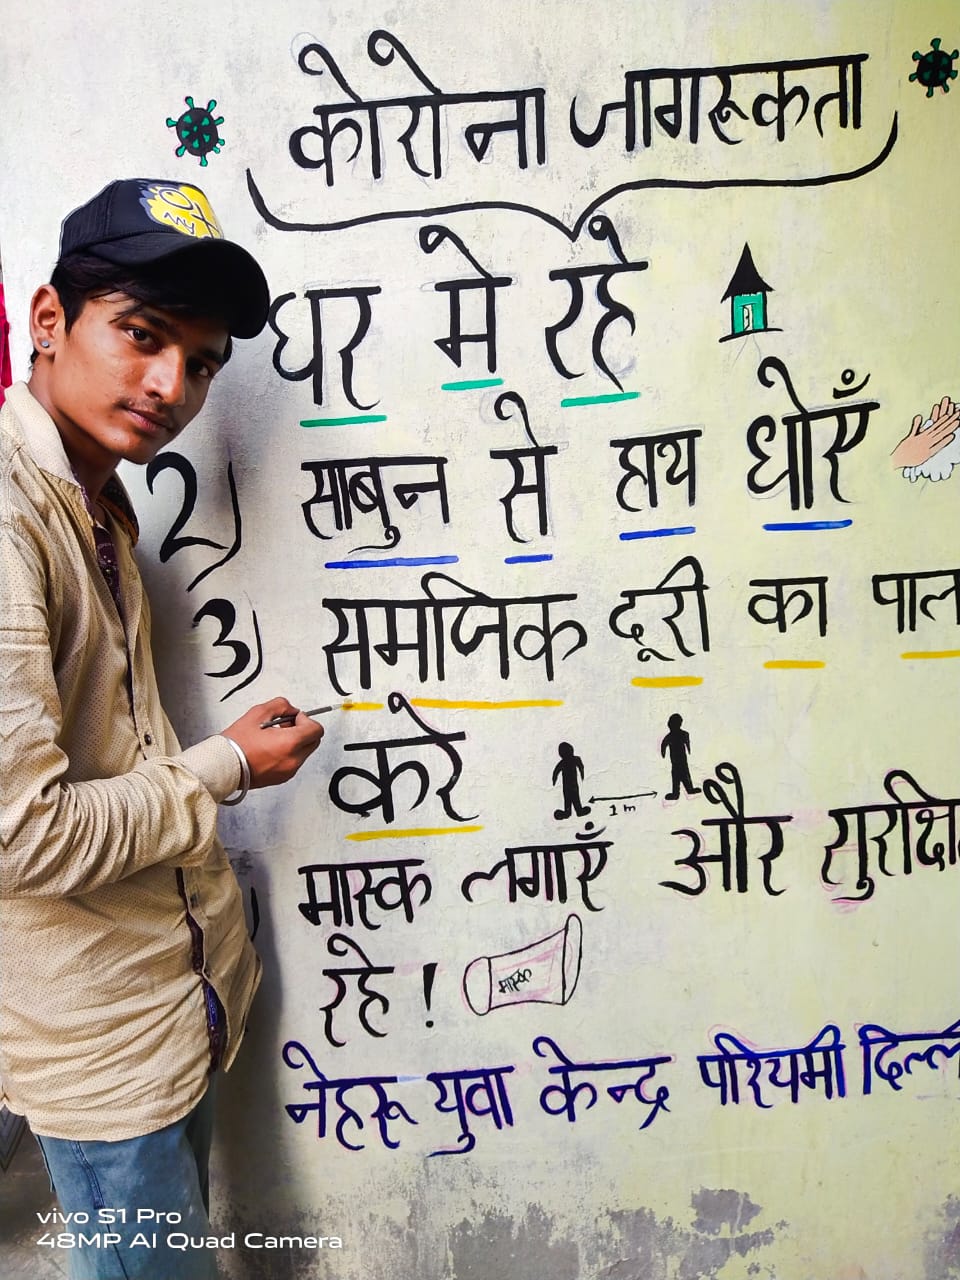 कोरोना जागरूकता
घर मे रहे
2) साबुन से हाथ धोएँ
3) समाजिक दूरी का पाल
करे
1 m
मास्क लगाएँ और सुरक्षि
रहे !
मास्क
नेहरू युवा केन्द्र परियमी दिल्ल
my
vivo S1 Pro
48MP AI Quad Camera